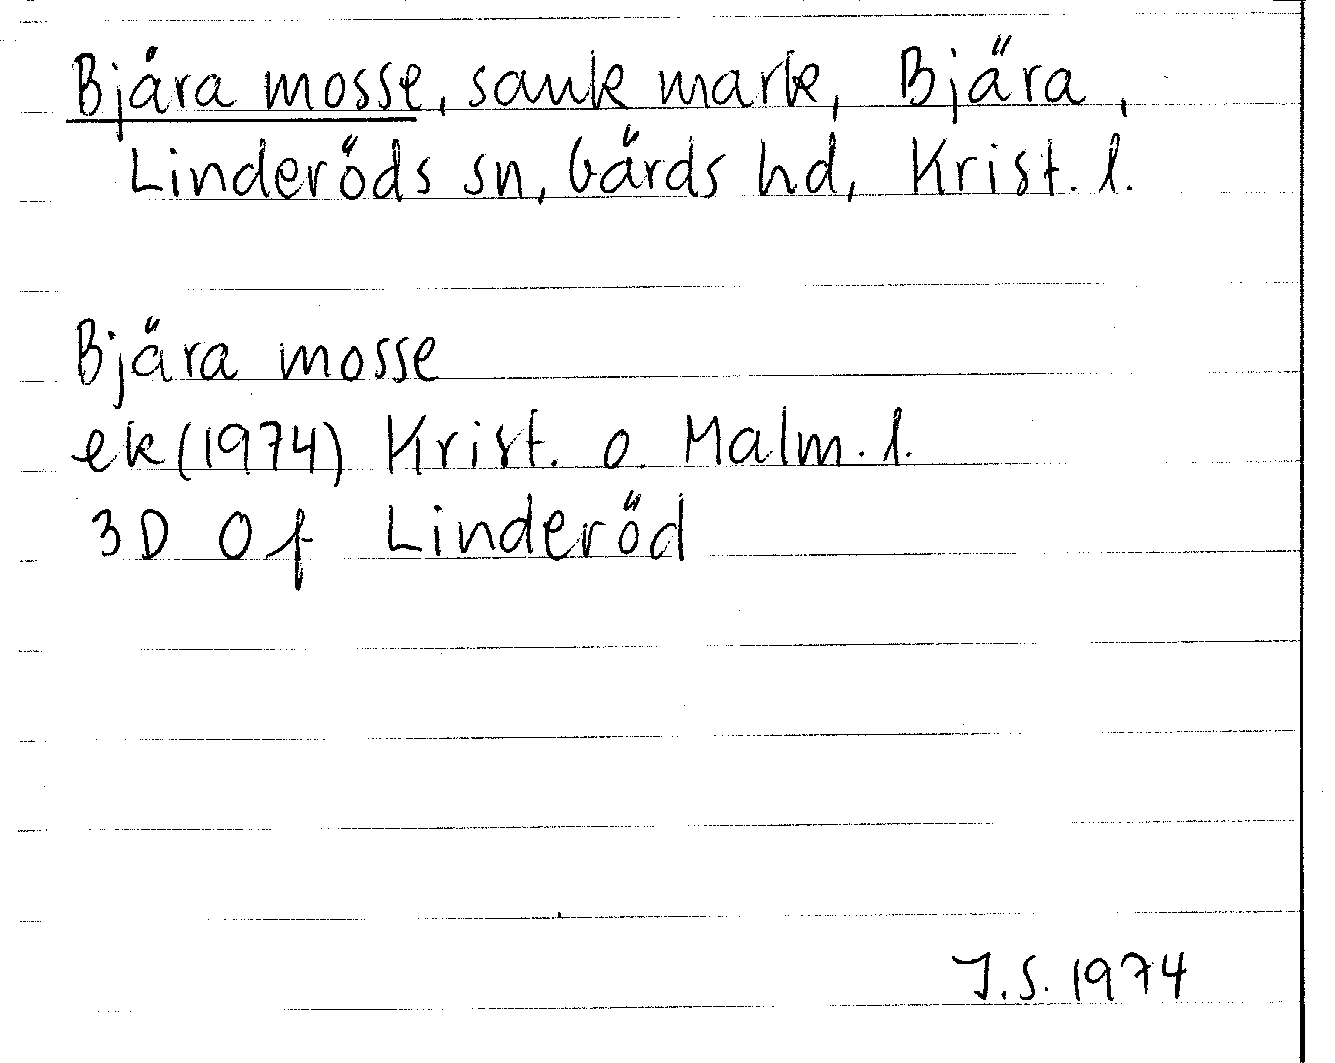 Bjära mosse, sank mark, Bjära,
Linderöds sn, Gärds hd, Krist. l.
Bjära mosse
ek (1974) Krist. o. Malm. l.
3D 0f Linderöd
J.S. 1974